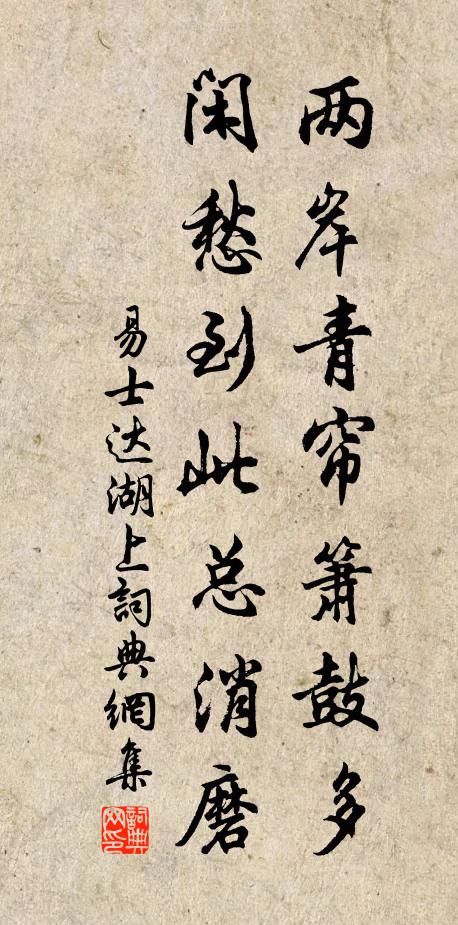 两岸青帘箫鼓多
闲愁到此总消磨
易士达湖上詞典網集
詞典网印